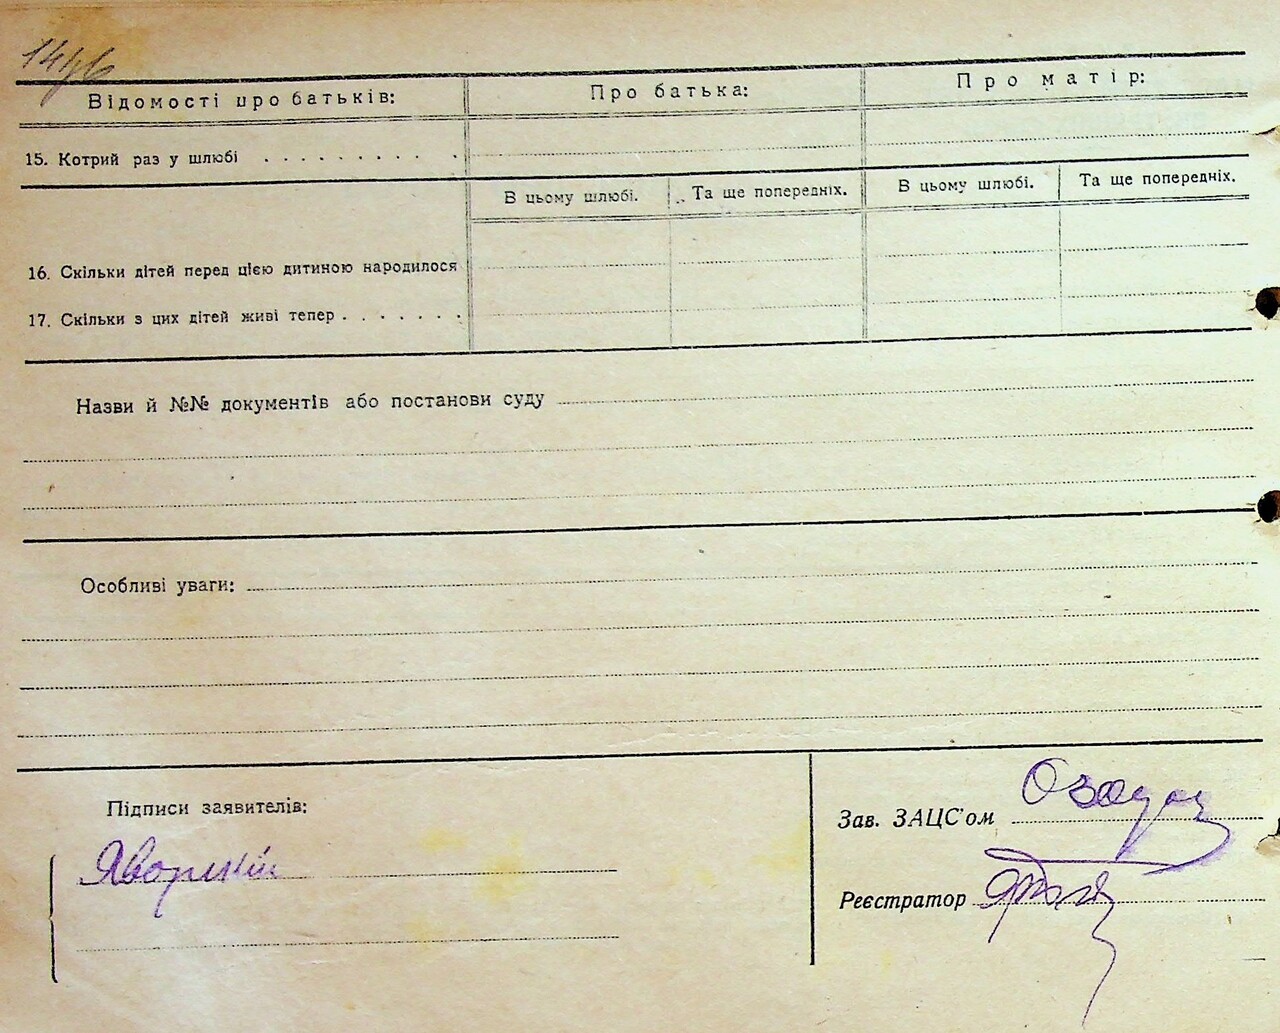 1446
Відомості про батьків: Про батька: Про матір:
15. Котрий раз у шлюбі . . . . . . . . . .
В цьому шлюбі. Та ще попередніх. В цьому шлюбі. Та ще попередніх.
16. Скільки дітей перед цією дитиною народилося
17. Скільки з цих дітей живі тепер . . . . . . .
Назви й №№ документів або постанови суду
Особливі уваги:
Підписи заявителів:
Яворский
Зав. ЗАЦС'ом
Реєстратор